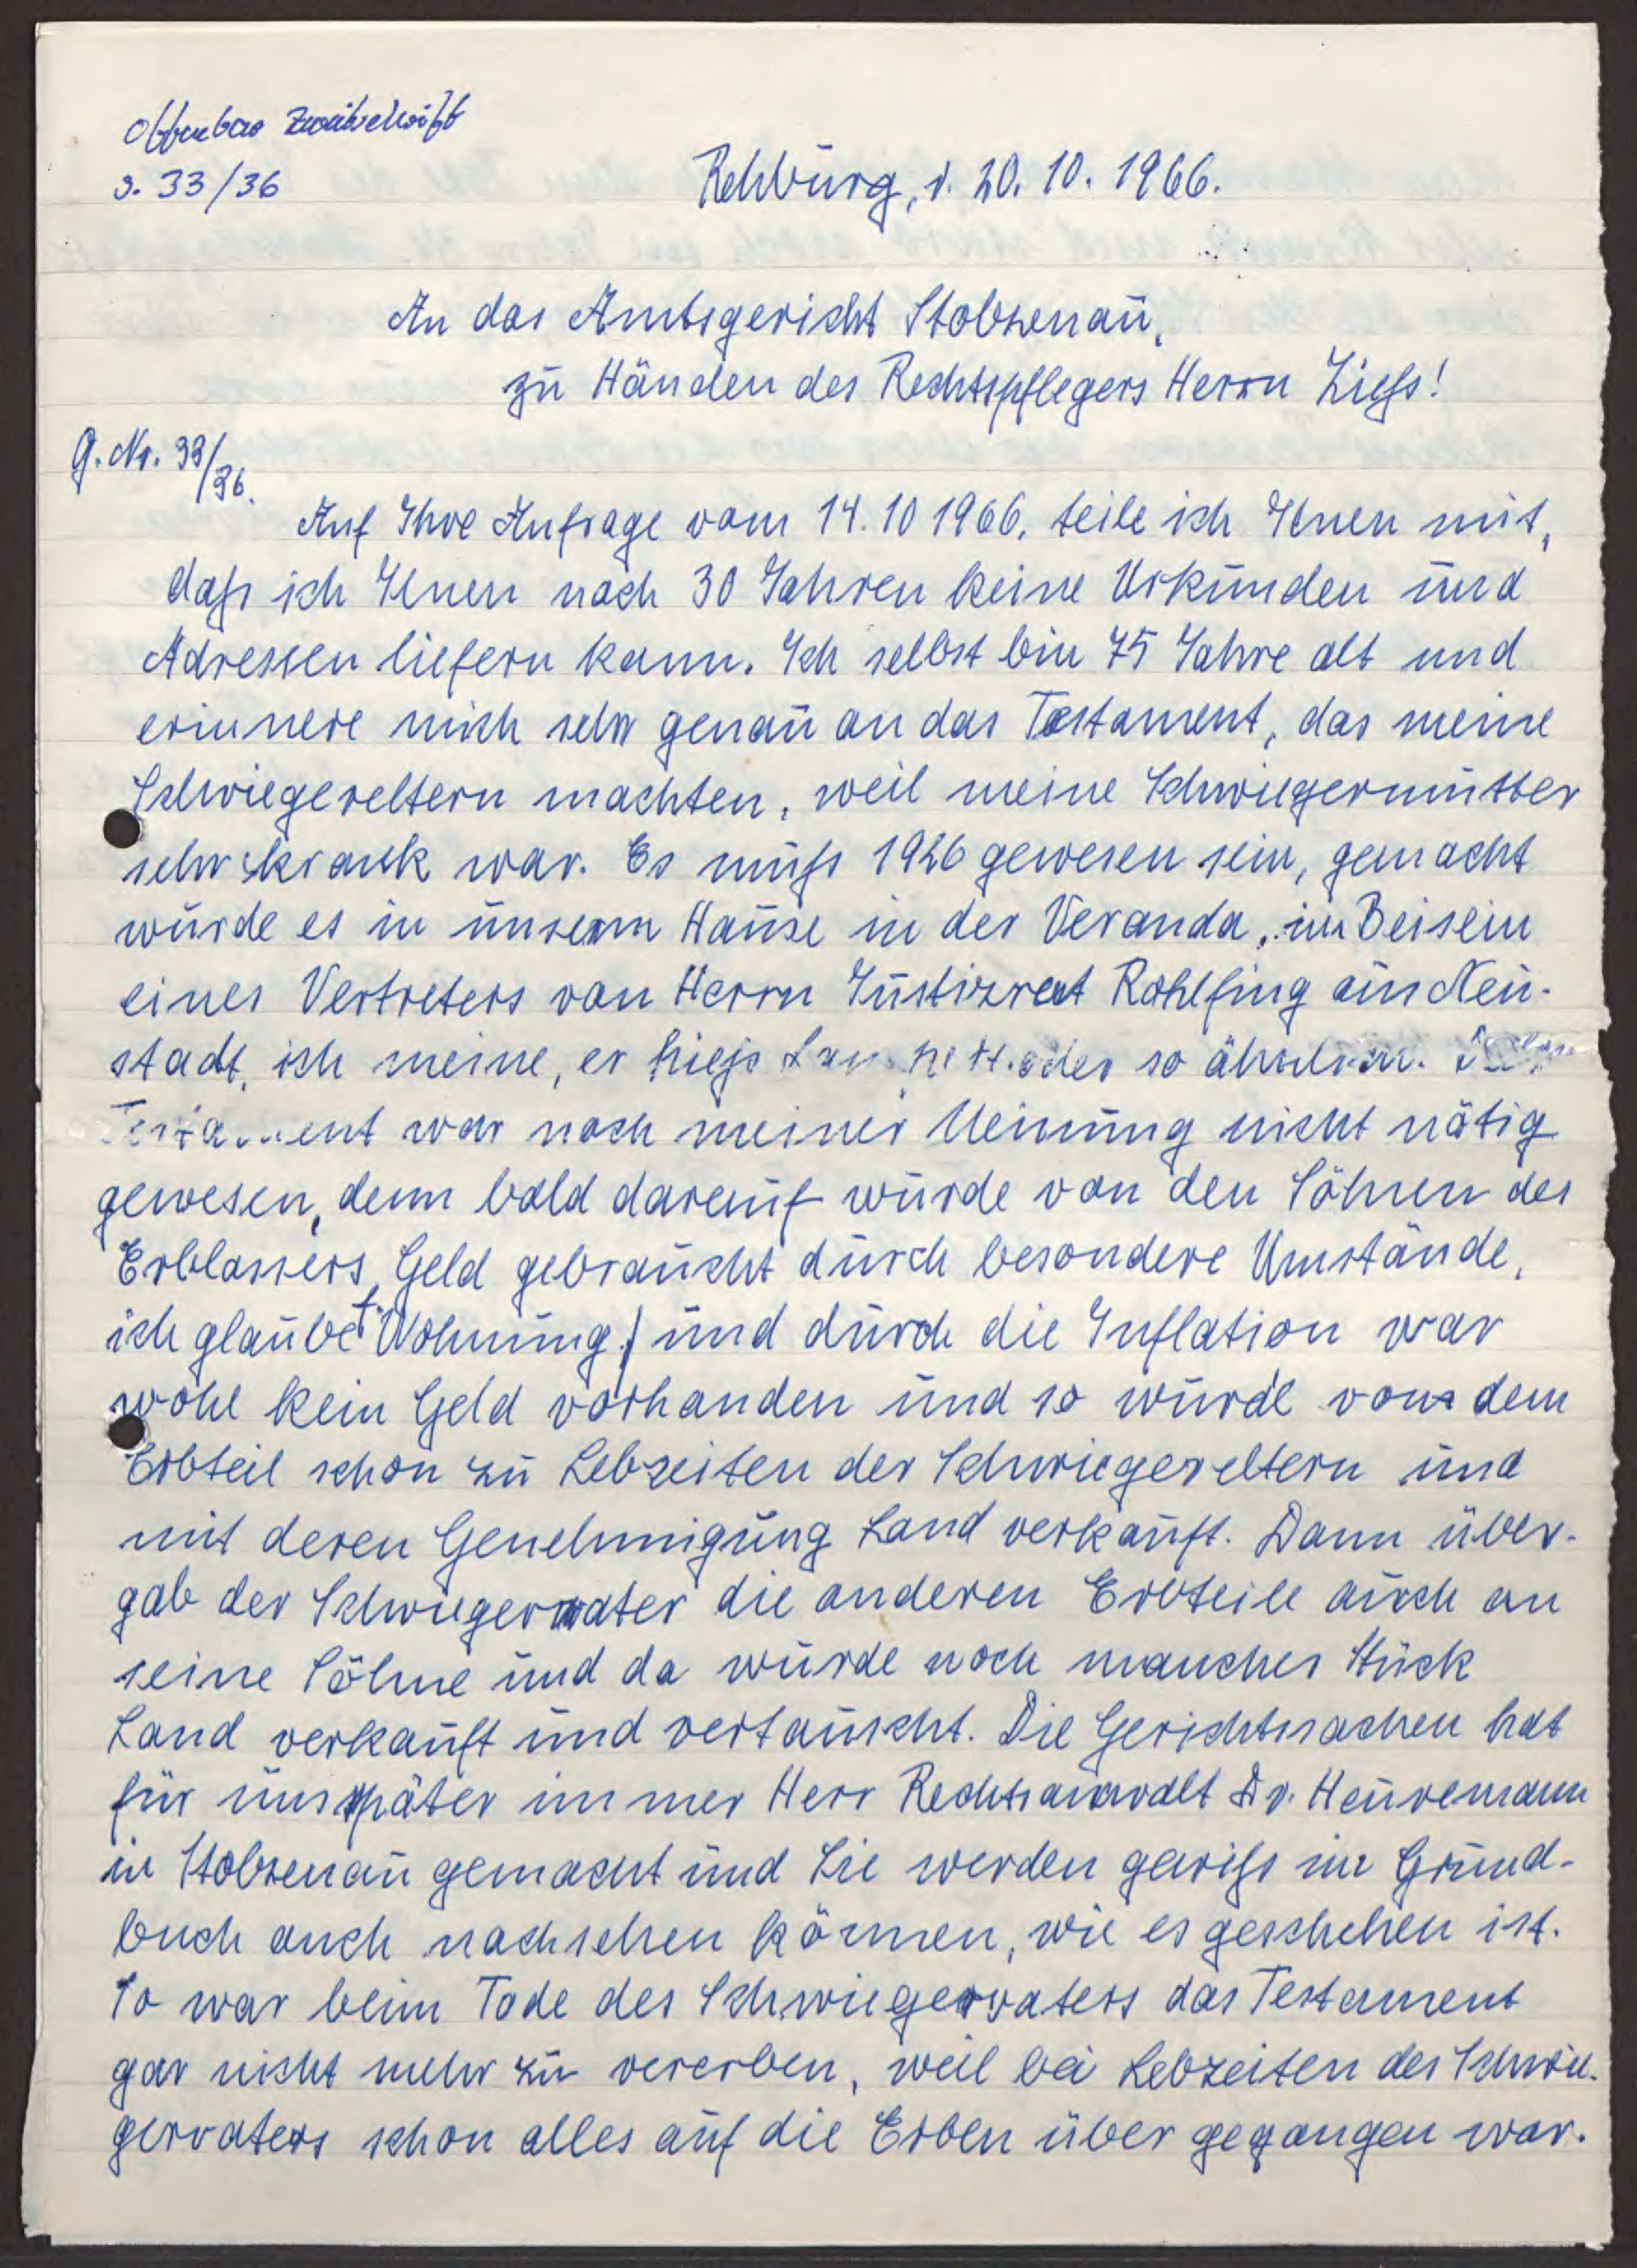 offenbar Zweitschrift
s. 33/36
Rehburg, d. 20. 10. 1966.
An das Amtsgericht Stolzenau,
zu Händen des Rechtspflegers Herrn Ziefs!
G. Nr. 33/36.
Auf Ihre Anfrage vom 14. 10 1966, teile ich Ihnen mit,
dafs ich Ihnen nach 30 Jahren keine Urkunden und
Adressen liefern kann. Ich selbst bin 75 Jahre alt und
erinnere mich sehr genau an das Testament, das meine
Schwiegereltern machten, weil meine Schwiegermutter
sehr krank war. Es mufs 1926 gewesen sein, gemacht
wurde es in unserm Hause in der Veranda, im Beisein
eines Vertreters von Herrn Justizrat Rohlfing aus Neu-
stadt, ich meine, er hiefs oder so ähnlich.
Testament war nach meiner Meinung nicht nötig
gewesen, denn bald darauf wurde von den Söhnen des
Erblassers Geld gebraucht durch besondere Umstände,
ich glaube f. Wohnung) und durch die Inflation war
wohl kein Geld vorhanden und so wurde von dem
Erbteil schon zu Lebzeiten der Schwiegereltern und
mit deren Genehmigung Land verkauft. Dann über-
gab der Schwiegervater die anderen Erbteile auch an
seine Söhne und da wurde noch manches Stück
Land verkauft und vertauscht. Die Gerichtssachen hat
für uns später immer Herr Rechtsanwalt Dr. Heunemann
in Stolzenau gemacht und Sie werden gewifs im Grund-
buch auch nachsehen können, wie es geschehen ist.
So war beim Tode des Schwiegervaters das Testament
gar nicht mehr zu vererben, weil bei Lebzeiten des Schwie-
gervaters schon alles auf die Erben über gegangen war.